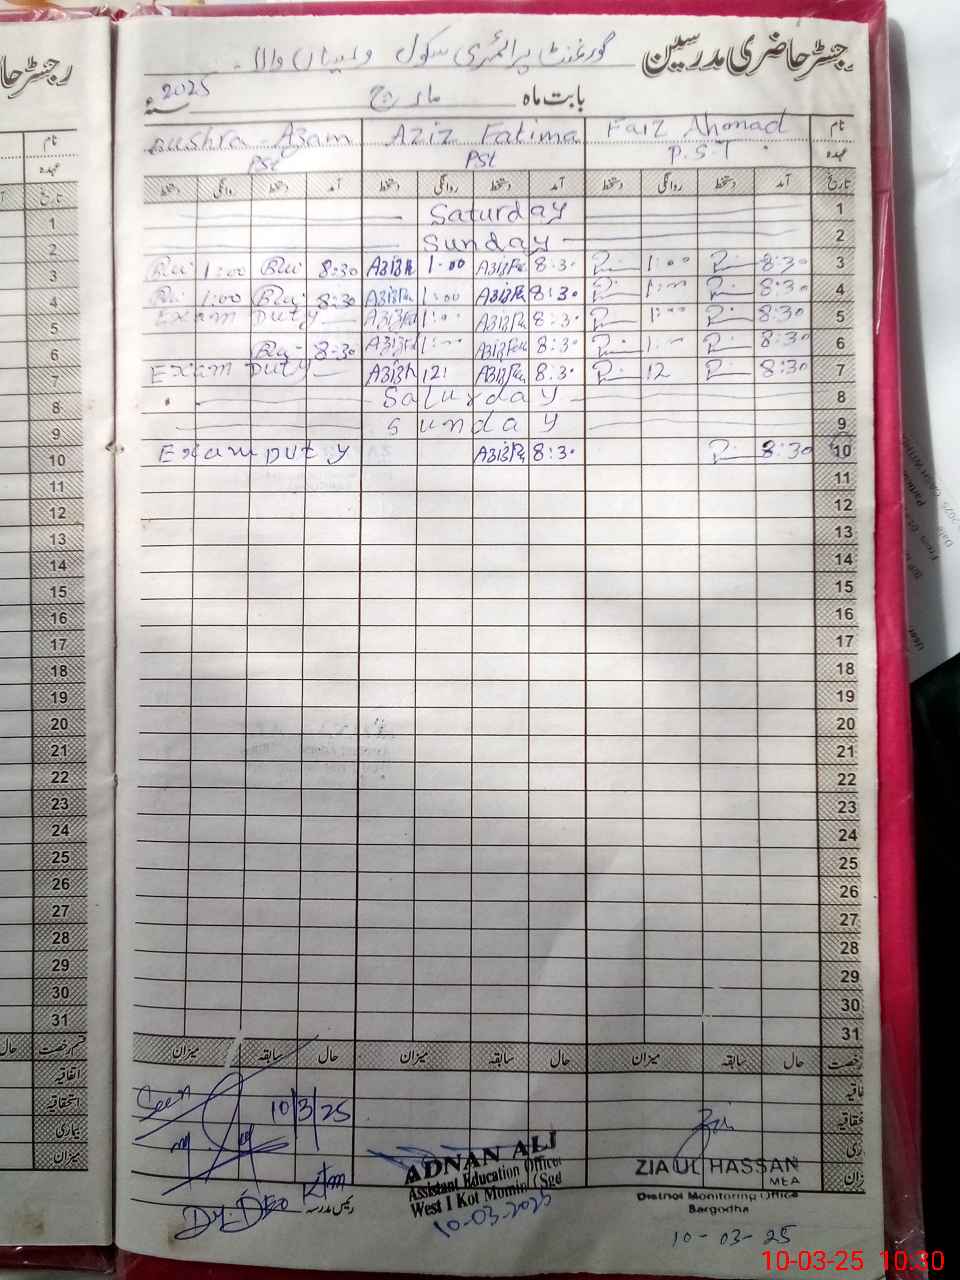 رجسٹر حاضری مدرسین گورنمنٹ پرائمری سکول
بابت ماہ مارچ سنہ 2025
نام Faiz Ahmad Aziz Fatima Bushra Azam
عہدہ P.S.T PST PST
تاریخ آمد دستخط روانگی دستخط آمد دستخط روانگی دستخط آمد دستخط روانگی دستخط
1 Saturday
2 Sunday
3 8:30 1:00 8:30 1:00 8:30 1:00
4 8:30 1:00 8:30 1:00 8:30 1:00
5 8:30 1:00 8:30 1:00 Exam Duty
6 8:30 1:00 8:30 1:00 8:30
7 8:30 12 8:30 12 Exam Duty
8 Saturday
9 Sunday
10 8:30 8:30 Exam Duty
11
12
13
14
15
16
17
18
19
20
21
22
23
24
25
26
27
28
29
30
31
رخصت حال سابقہ میزان حال سابقہ میزان حال سابقہ میزان
Seen
10/3/25
رئیس مدرسہ
Dy. DEO Km
ADNAN ALI
Assistant Education Officer
West I Kot Momin (Sgd
10-03-2025
ZIA UL HASSAN
MEA
District Monitoring Office
Sargodha
10-03-25
رجسٹر حا
نام
عہدہ
تاریخ
1
2
3
4
5
6
7
8
9
10
11
12
13
14
15
16
17
18
19
20
21
22
23
24
25
26
27
28
29
30
31
قسم رخصت حال
اتفاقیہ
استحقاقیہ
بیماری
میزان
10-03-25 10:30